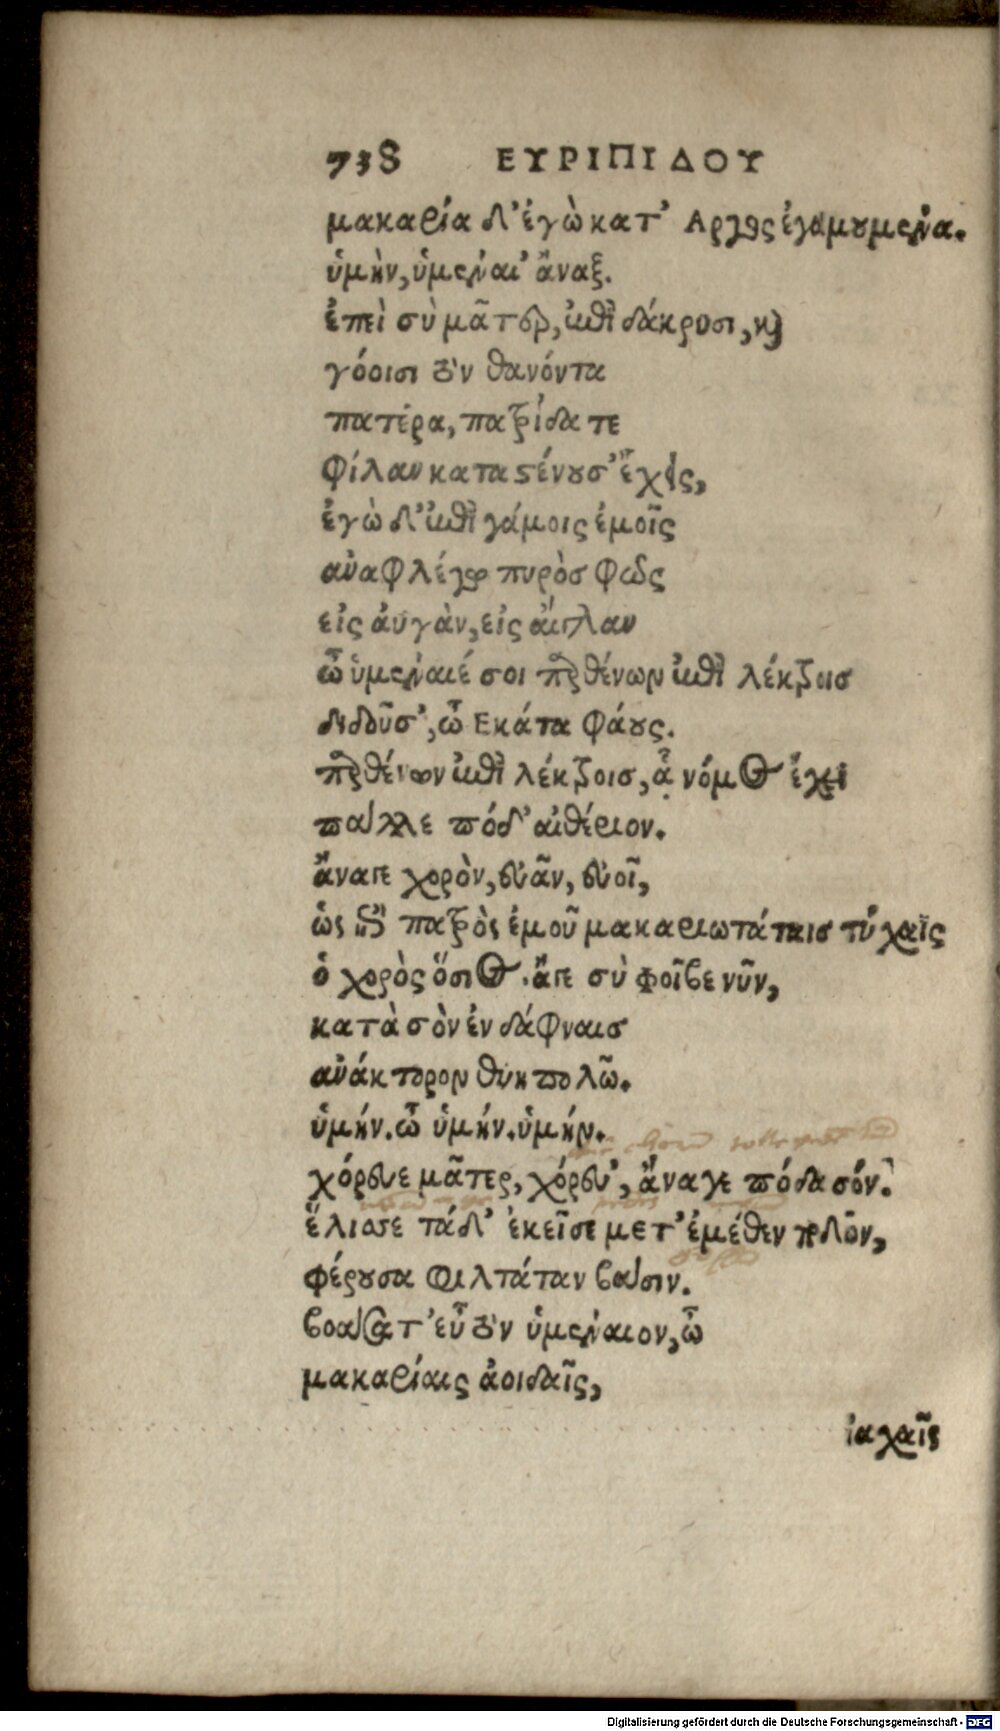 738 ΕΥΡΙΠΙΔΟΥ
μακαρία δ' ἐγὼ κατ' Αργος ἐγαμουμένα.
ὑμὴν, ὑμέναι' ἄναξ.
ἐπεὶ σὺ μᾶτερ, ἐπὶ δάκρυσι, καὶ
γόοισι τὸν θανόντα
πατέρα, πατρίδα τε
φίλαν καταστένουσ' ἔχεις,
ἐγὼ δ' ἐπὶ γάμοις ἐμοῖς
ἀναφλέγω πυρὸσ φῶς
εἰς ἀυγὰν, εἰς αἴγλαν
ὦ ὑμέναιέ σοι παρθένων ἐπὶ λέκτροισ
διδοῦσ', ὦ Εκάτα φάους.
παρθένων ἐπὶ λέκτροισ, ᾇ νόμος ἔχει
πάλλε πόδ' αἰθέριον.
ἄναγε χορὸν, εὐᾶν, εὐοῖ,
ὡς ἐπὶ πατρὸς ἐμοῦ μακαριωτάταισ τύχαις
ὁ χορὸς ὅσιος. ἄγε σὺ φοῖβε νῦν,
κατὰ σὸν ἐν δάφναισ
ἀνάκτορον θυηπολῶ.
ὑμήν. ὦ ὑμήν. ὑμήν.
χόρευε μᾶτερ, χόρευ', ἄναγε πόδα σόν.
ἕλισσε τᾷδ' ἐκεῖσε μετ' ἐμέθεν ποδῶν,
φέρουσα φιλτάταν βάσιν.
βοάσατ' εὖ τὸν ὑμέναιον, ὦ
μακαρίαις ἀοιδαῖς,
ἰαχαῖς
Digitalisierung gefördert durch die Deutsche Forschungsgemeinschaft - DFG